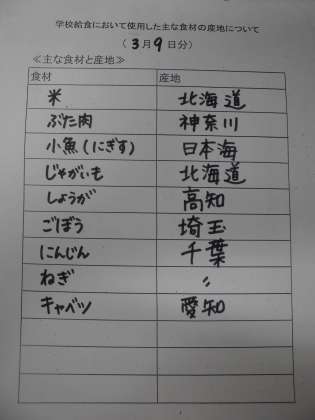 学校給食において使用した主な食材の産地について
（3月9日分）
≪主な食材と産地≫
食材 産地
米 北海道
ぶた肉 神奈川
小魚(にぎす) 日本海
じゃがいも 北海道
しょうが 高知
ごぼう 埼玉
にんじん 千葉
ねぎ 〃
キャベツ 愛知